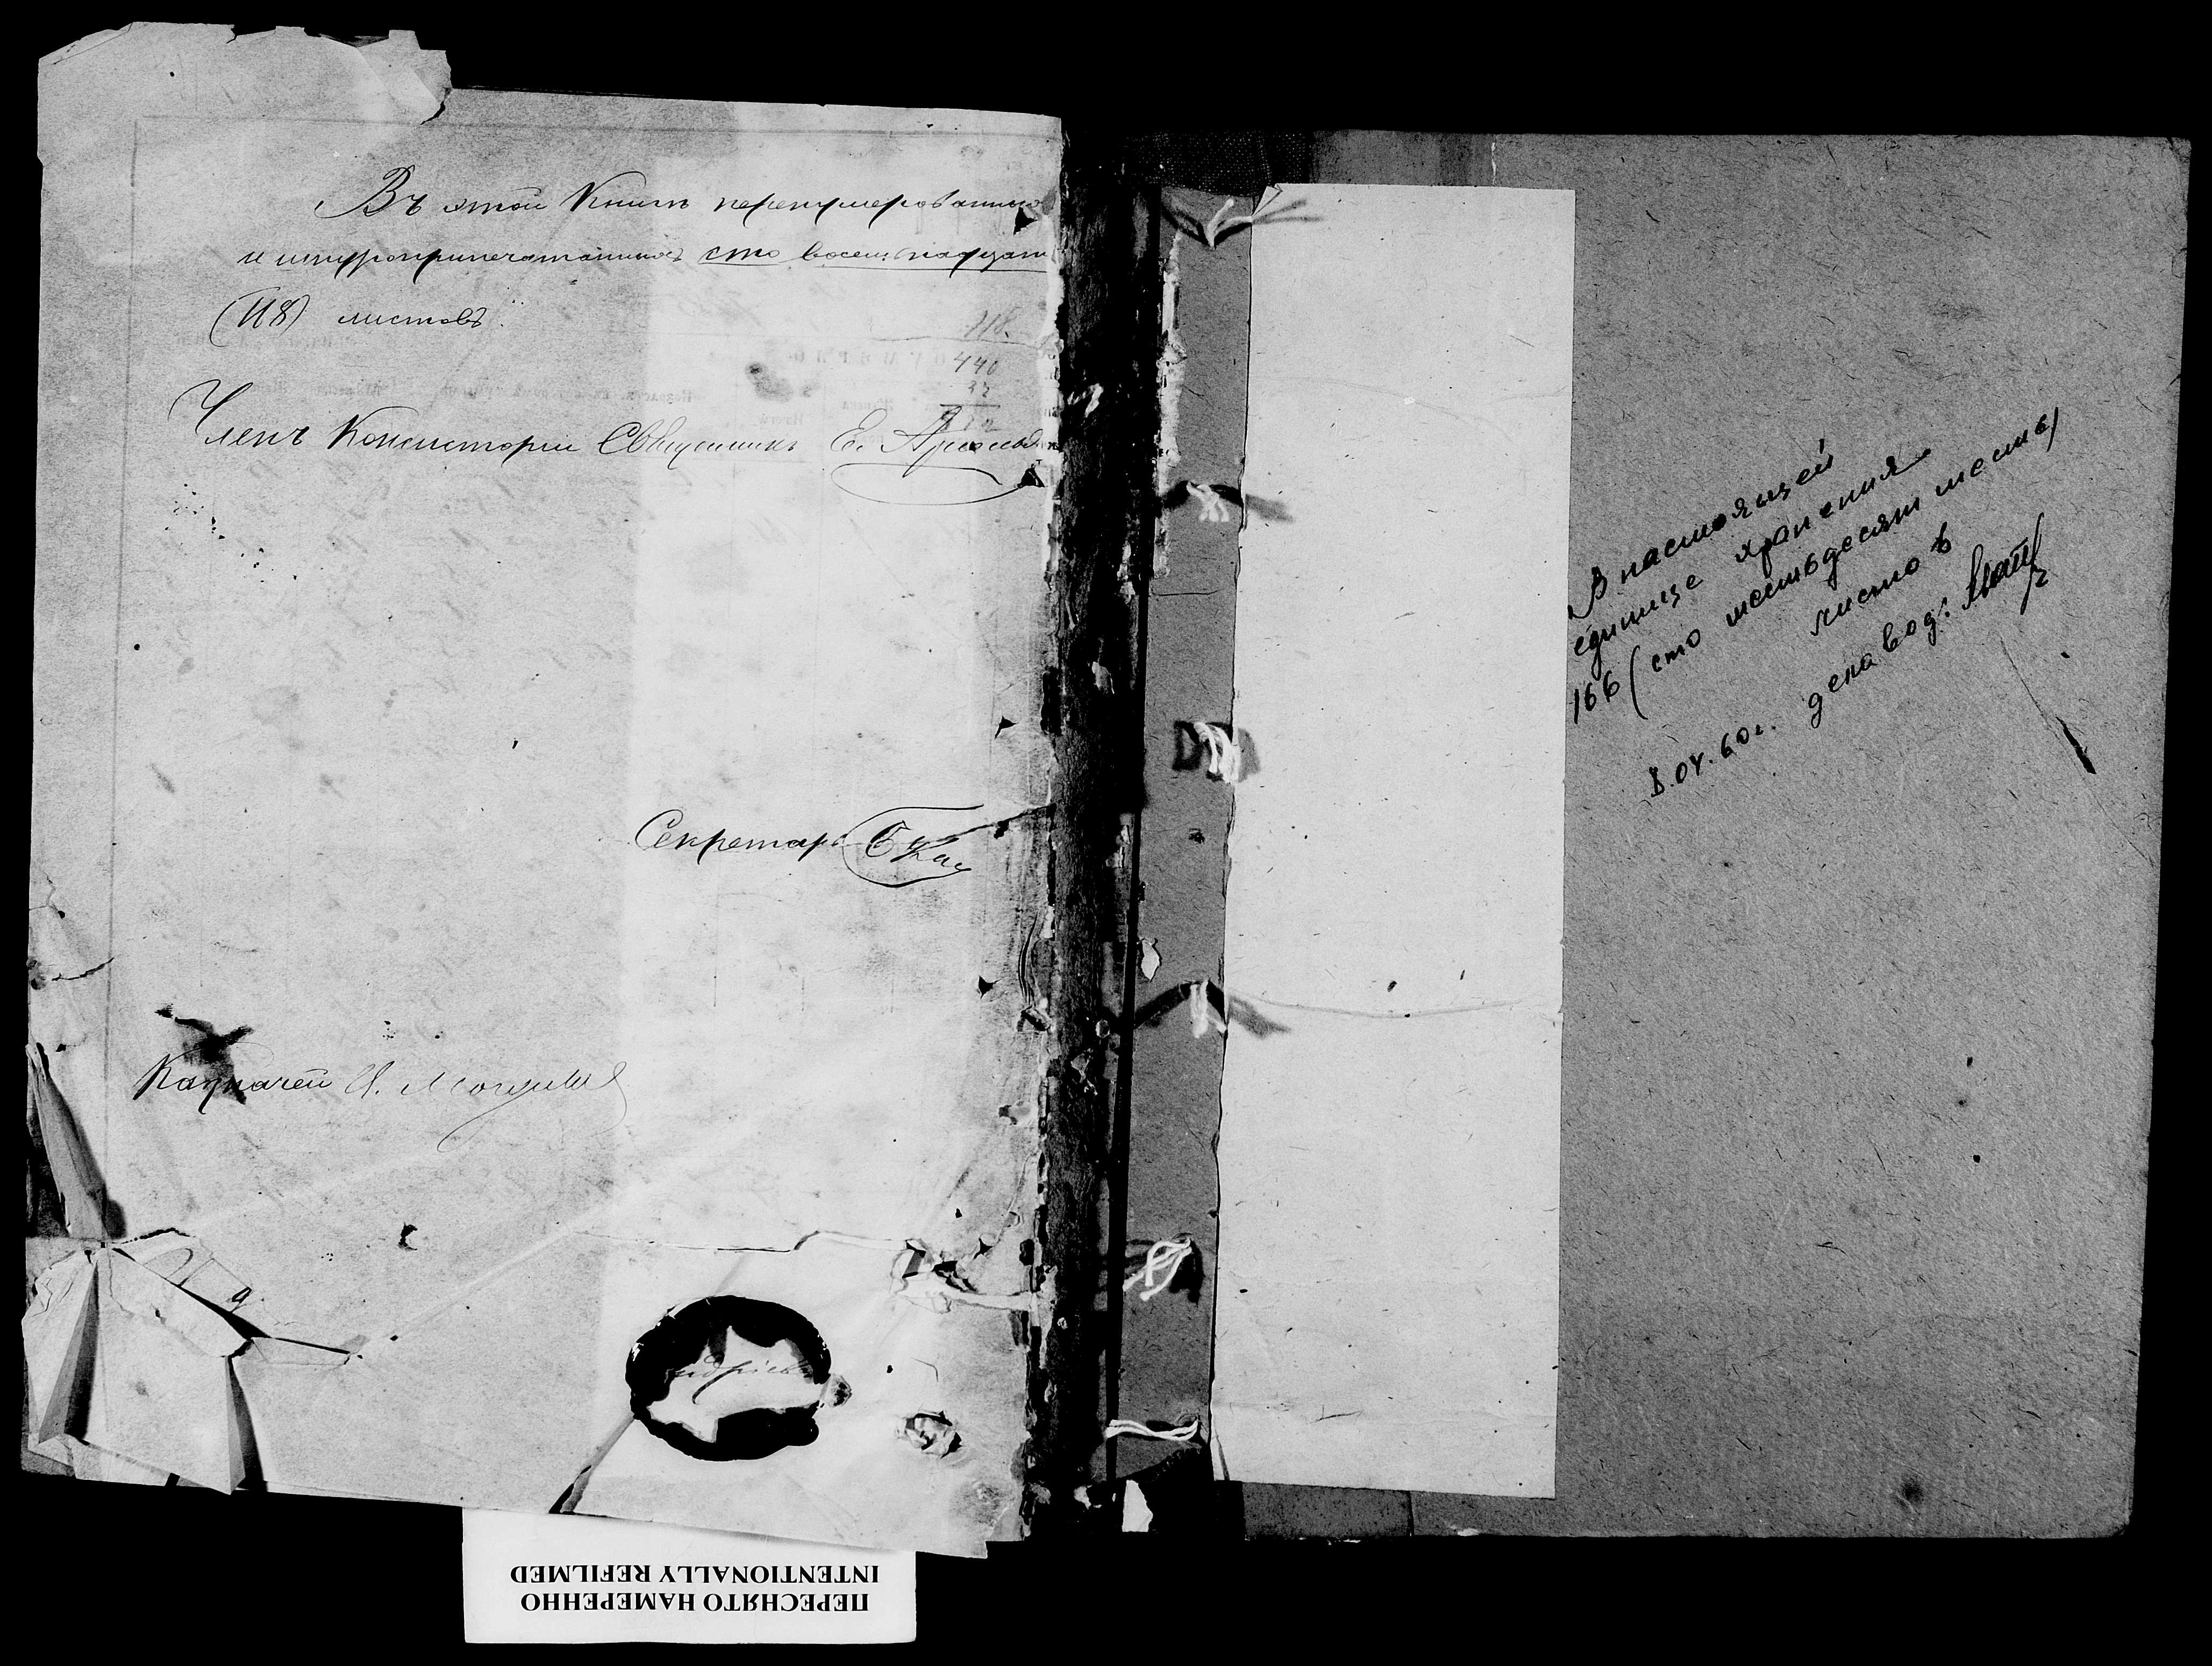 Въ этой Книгѣ перенумерованныхъ
и шнуроприпечатанныхъ сто восемьнадцать
(118) листовъ.
118.
440
37
Членъ Консисторіи Священникъ Е.
Секретарь
Казначей
В настоящей
единице хранения
166 (сто шестьдесят шесть)
листов
8.04.60г. делавод:
ПЕРЕСНЯТО НАМЕРЕННО
INTENTIONALLY REFILMED